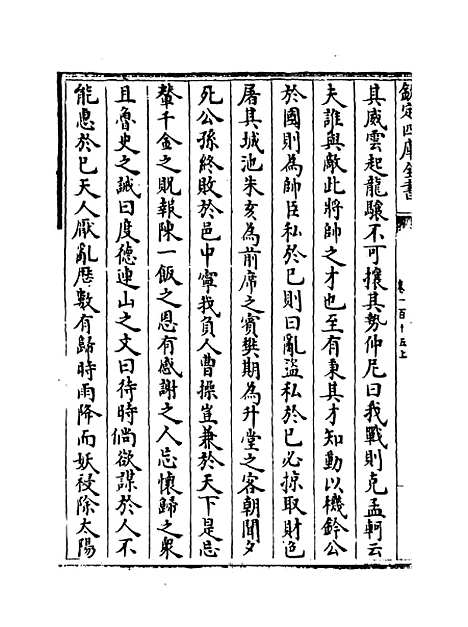 欽定四庫全書
卷一百十五上
其威雲起龍驤不可攘其勢仲尼曰我戰則克孟軻云
夫誰與敵此將帥之才也至有秉其才知動以機鈐公
於國則為帥臣私於已則曰亂盜私於已必掠取財色
屠其城池朱亥為前席之賓樊期為升堂之客朝聞夕
死公孫終敗於邑中寧我負人曹操豈兼於天下是忘
輦千金之貺報陳一飯之恩有感謝之人忘懷歸之衆
且魯史之誡曰度德連山之文曰待時倘欲謀於人不
能惠於已天人厭亂歴數有歸時雨降而妖祲除太陽